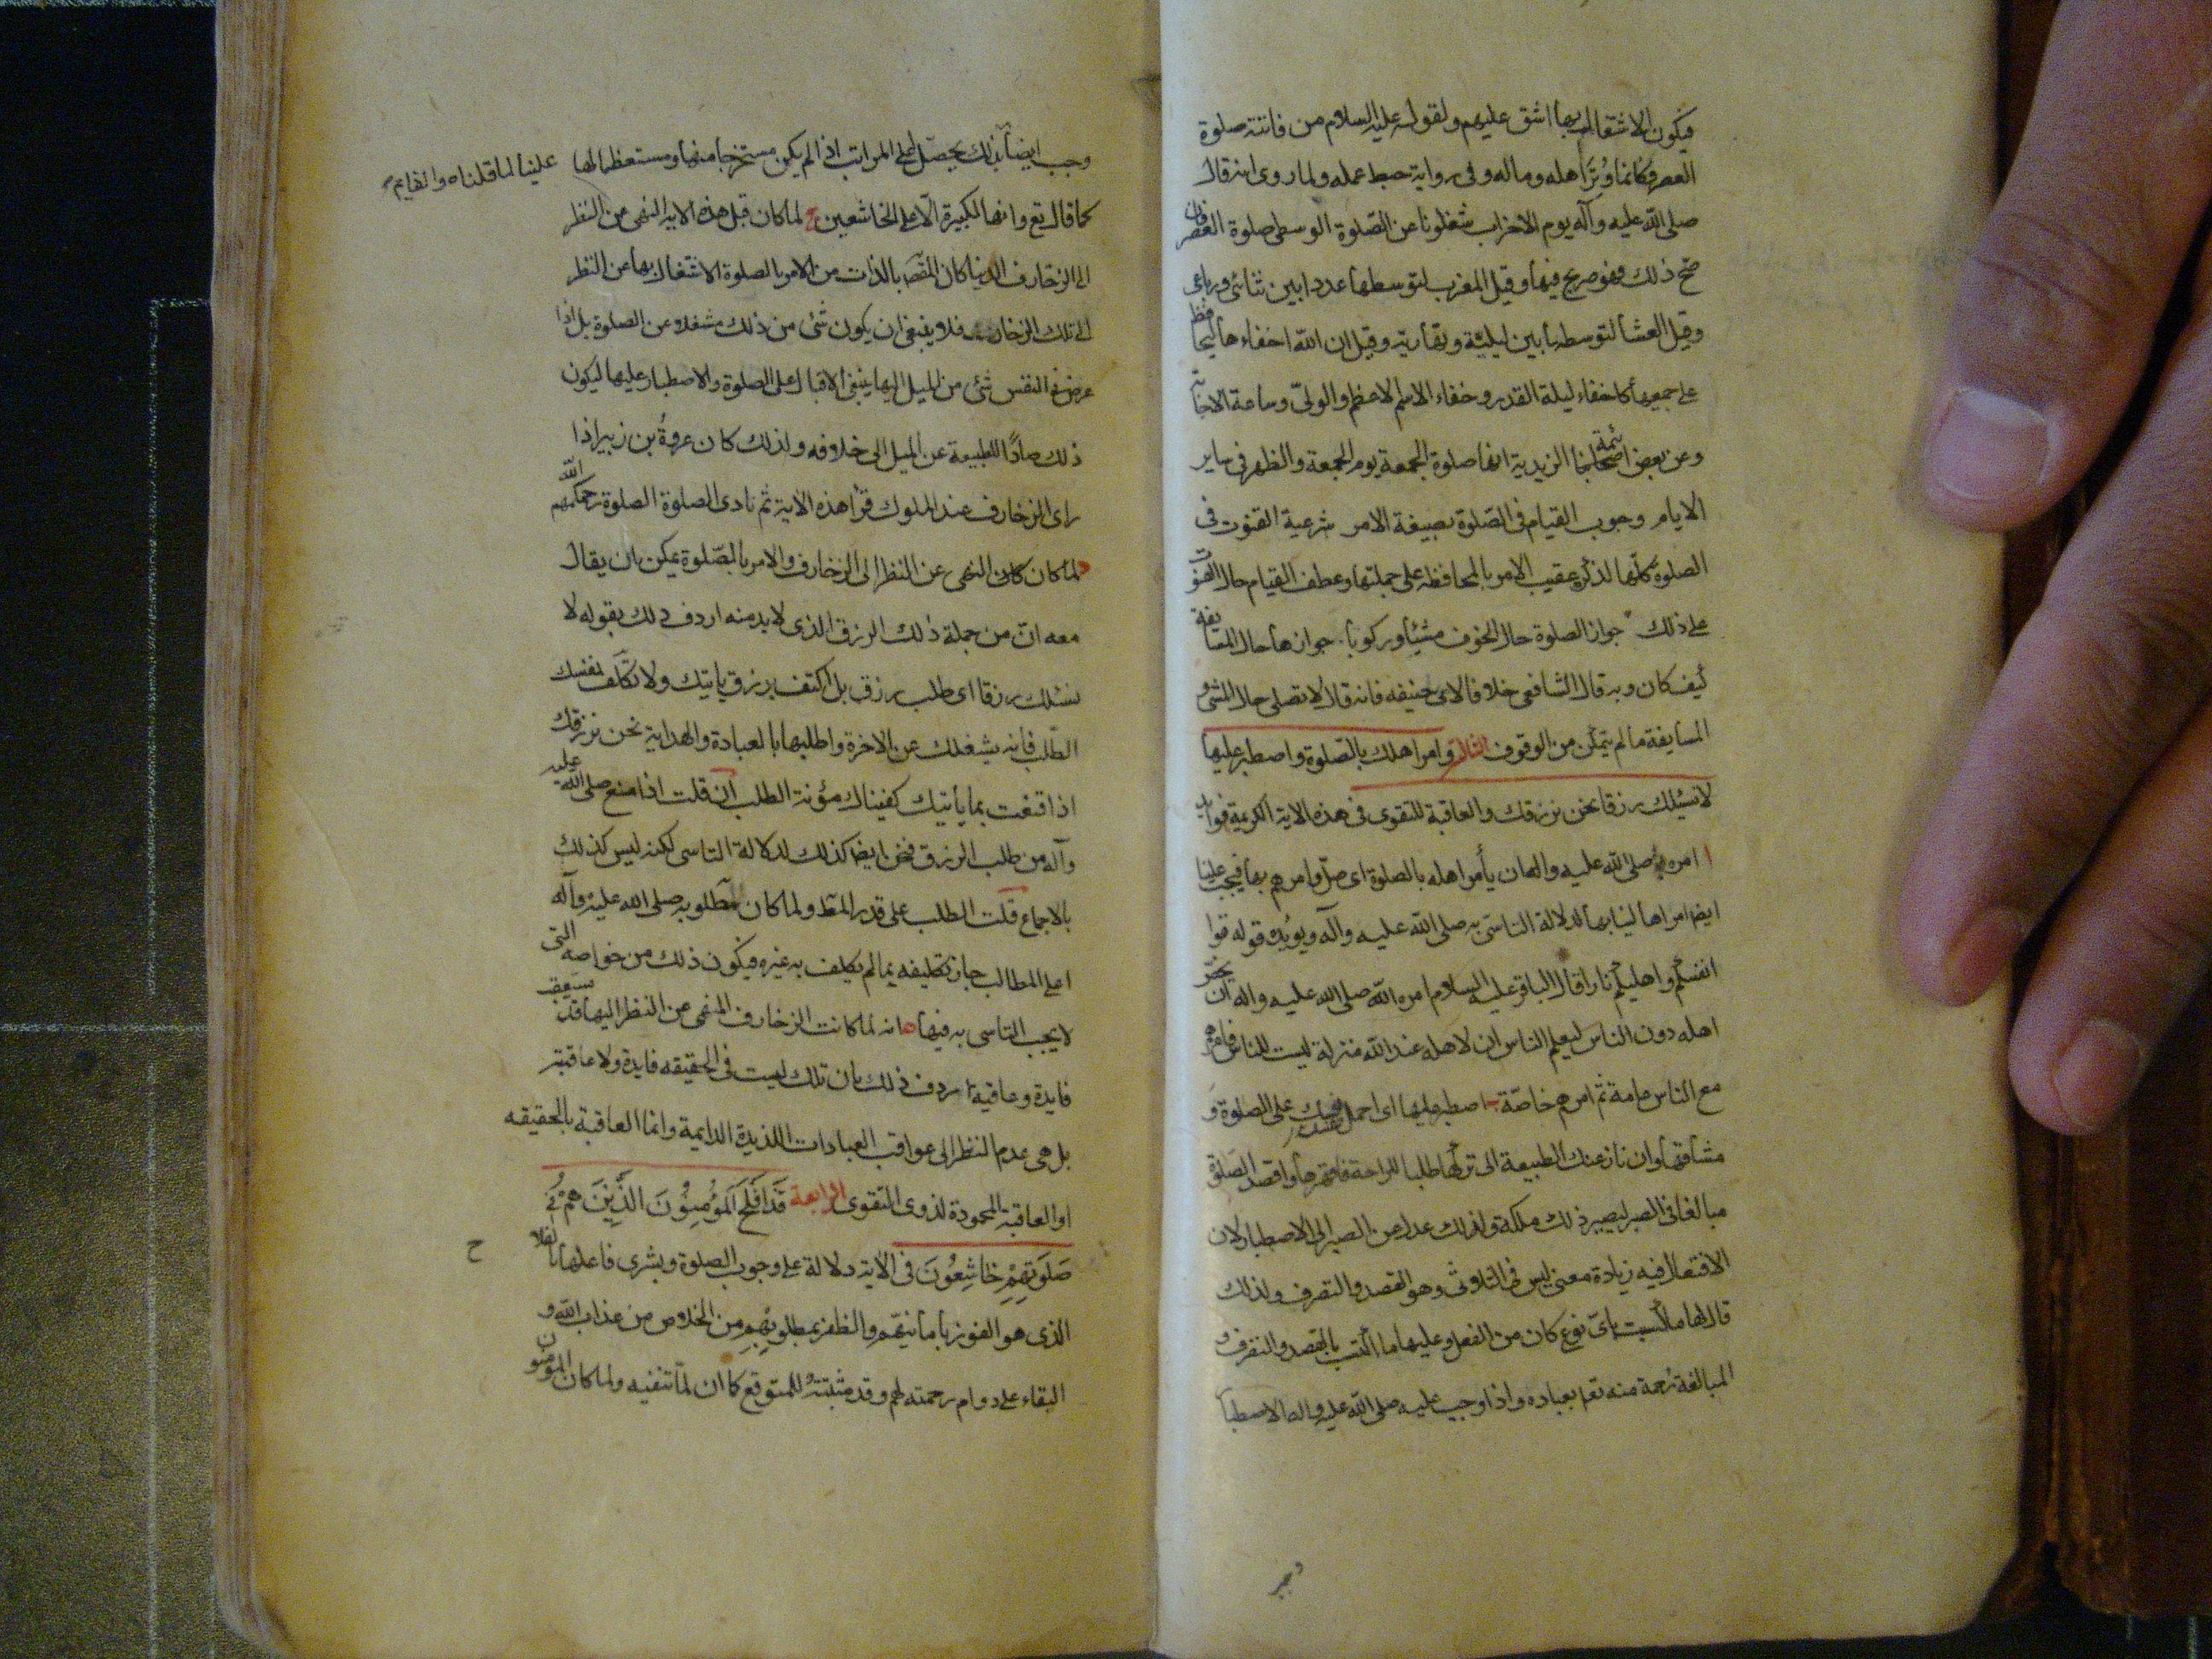 فيكون الاشتغال بها اشق عليهم ولقوله عليه السلام من فاتته صلوة
العصر فكانما وُتِرَ اهله وماله وفى رواية حبط عمله ولما روى انه قال
صلى الله عليه وآله يوم الاحزاب شغلونا عن الصّلوة الوسطى صلوة العصر فان
صح ذلك فهو صريح فيها وقيل المغرب لتوسطها عددا بين ثنائى ورباعى
وقيل العشا لتوسطها بين ليليّة ونهاريّة وقيل ان الله اخفاها ليحافظ
على جميعها كاخفاء ليلة القدر وخفاء الاسم الاعظم والولىّ وساعة الاجابة
وعن بعض ائمة الزيدية انها صلوة الجمعة يوم الجمعة والظهر فى ساير
الايام وجوب القيام فى الصّلوة بصيغة الامر شرعية القنوت فى
الصلوة كلّها لذكره عقيب الامر بالمحافظه على جملتها وعطف القيام حال القنوت
على ذلك جواز الصلوة حال الخوف مشيًا وركوبا جوازها حال المسايفة
كيف كان وبه قال الشافعى خلافا لابى حنيفه فانه قال لا تصلى حال المشى و
المسايفة ما لم يتمكّن من الوقوف الثالثة وامر اهلك بالصّلوة واصطبر عليها
لا نسئلك رزقا نحن نرزقك والعاقبة للتقوى فى هذه الاية الكريمة فوايد
ا امره صلى الله عليه واله ان يأمر اهله بالصلوة اى صلّ وامرهم بها فيجب علينا
ايضا امر اهالينا بها لدلالة التاسّى به صلى الله عليه وآله ويويّده قوله قوا
انفسكم واهليكم نارا قال الباقر عليه السلام امره الله صلى الله عليه واله ان يخصّ
اهله دون الناس ليعلم الناس ان لاهله عند الله منزلة ليست للناس فامرهم
مع الناس عامة ثم امرهم خاصّة ب اصطبر عليها اى احمل نفسك على الصلوة و
مشاقها وان نازعتك الطبيعة الى تركها طلبا للراحة فاقهرها واقصد الصّلوة
مبالغا فى الصبر ليصير ذلك ملكة ولذلك عدل عن الصبر الى الاصطبار لان
الافتعال فيه زيادة معنى ليس فى الثلاثى وهو القصد والتصرف ولذلك
قال لها ما كسبت باىّ نوع كان من الفعل وعليها ما اكتسبت بالقصد والتصرف و
المبالغة رحمة منه تعم بعباده واذا وجب عليه صلى الله عليه واله الاصطبا
وجب ايضا علينا لما قلناه بذلك يحصّل اعلى المراتب اذا لم يكن مستحرجا منها ومستعظما لها
كما قال تع وانها لكبيرة الّا على الخاشعين ج لما كان قبل هذه الاية النهى عن النظر
الى الزخارف الدنيا كان المقص بالذات من الامر بالصلوة الاشتغال بها عن النظر
الى تلك الزخارف فلا ينبغى ان يكون شئ من ذلك مشغلا عن الصلوة بل اذا
عرض فى النفس شئ من الميل اليها ينبغى الاقبال على الصلوة والاصطبار عليها ليكون
ذلك صادّا للطبيعة عن الميل الى خلافه ولذلك كان عروة بن زبير اذا
راى الزخارف عند الملوك قرأ هذه الاية ثم نادى الصلوة الصلوة رحمكم الله
د لما كان النهى عن النظر الى الزخارف والامر بالصّلوة يمكن بان يقال
معه انّ من جملة ذلك الرزق الذى لا بد منه اردف ذلك بقوله لا
نسئلك رزقا اى طلب رزق بل اكتف برزق ياتيك ولا تكلّف نفسك
الطلب فانه يشغلك عن الاخرة واطلبها بالعبادة والهداية نحن نرزقك
اذا قنعت بما يأتيك كفيناك مؤنة الطلب ان قلت اذا منع صلى الله عليه
وآله من طلب الرزق فنحن ايضا كذلك لدلالة التاسى لكنه ليس كذلك
بالاجماع قلت الطلب على قدر المقط ولما كان مطلوبه صلى الله عليه وآله
اعلى المطالب جاز تكليفه بما لم يكلف به غيره فيكون ذلك من خواصه التى
لا يجب التاسى به فيها ه انه لما كانت الزخارف المنهى عن النظر اليها قد
فايدة وعاقبة اردف ذلك بان تلك ليست فى الحقيقه فايدة ولا عاقبة
بل هى عدم النظر الى عواقب العبادات اللذيذة الدايمة وانما العاقبة بالحقيقه
او العاقبة المحمودة لذوى التقوى الرابعة قَدْ اَفْلَحَ الْمُؤْمِنُونَ الَّذِينَ هُمْ فِى
صَلَوتِهِمْ خَاشِعُونَ فى الاية دلالة على وجوب الصلوة وبشرى فاعلها بالفلاح
الذى هو الفوز بامانيّهم والظفر بمطلوبهم من الخلاص من عذاب الله و
البقاء على دوام رحمته لهم وقد مثبتة للمتوقع كما ان لمّا تنفيه ولما كان المؤمنون